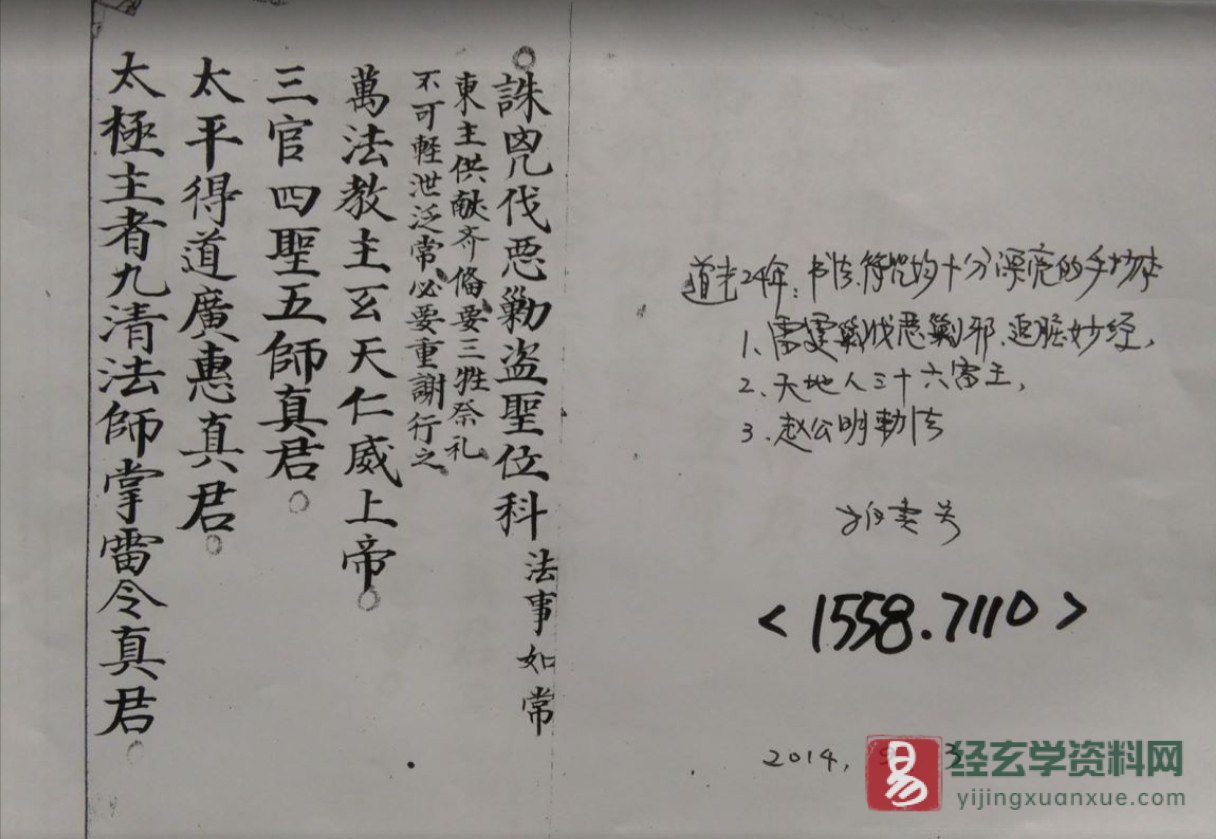 誅兇伐惡勦盗聖位科 法事如常
東主供献齐俻要三牲祭礼
不可輕泄泛常必要重謝行之
萬法教主玄天仁威上帝
三官四聖五師真君
太平得道廣惠真君
太極主者九清法師掌雷令真君
道光24年:书法符咒均十分漂亮的手抄本
1、雷霆 伐恶剿邪 妙经,
2、天地人三十六雷主,
3、赵公明勅法
<1558.7110>
2014,
易
经玄学资料网
yijingxuanxue.com